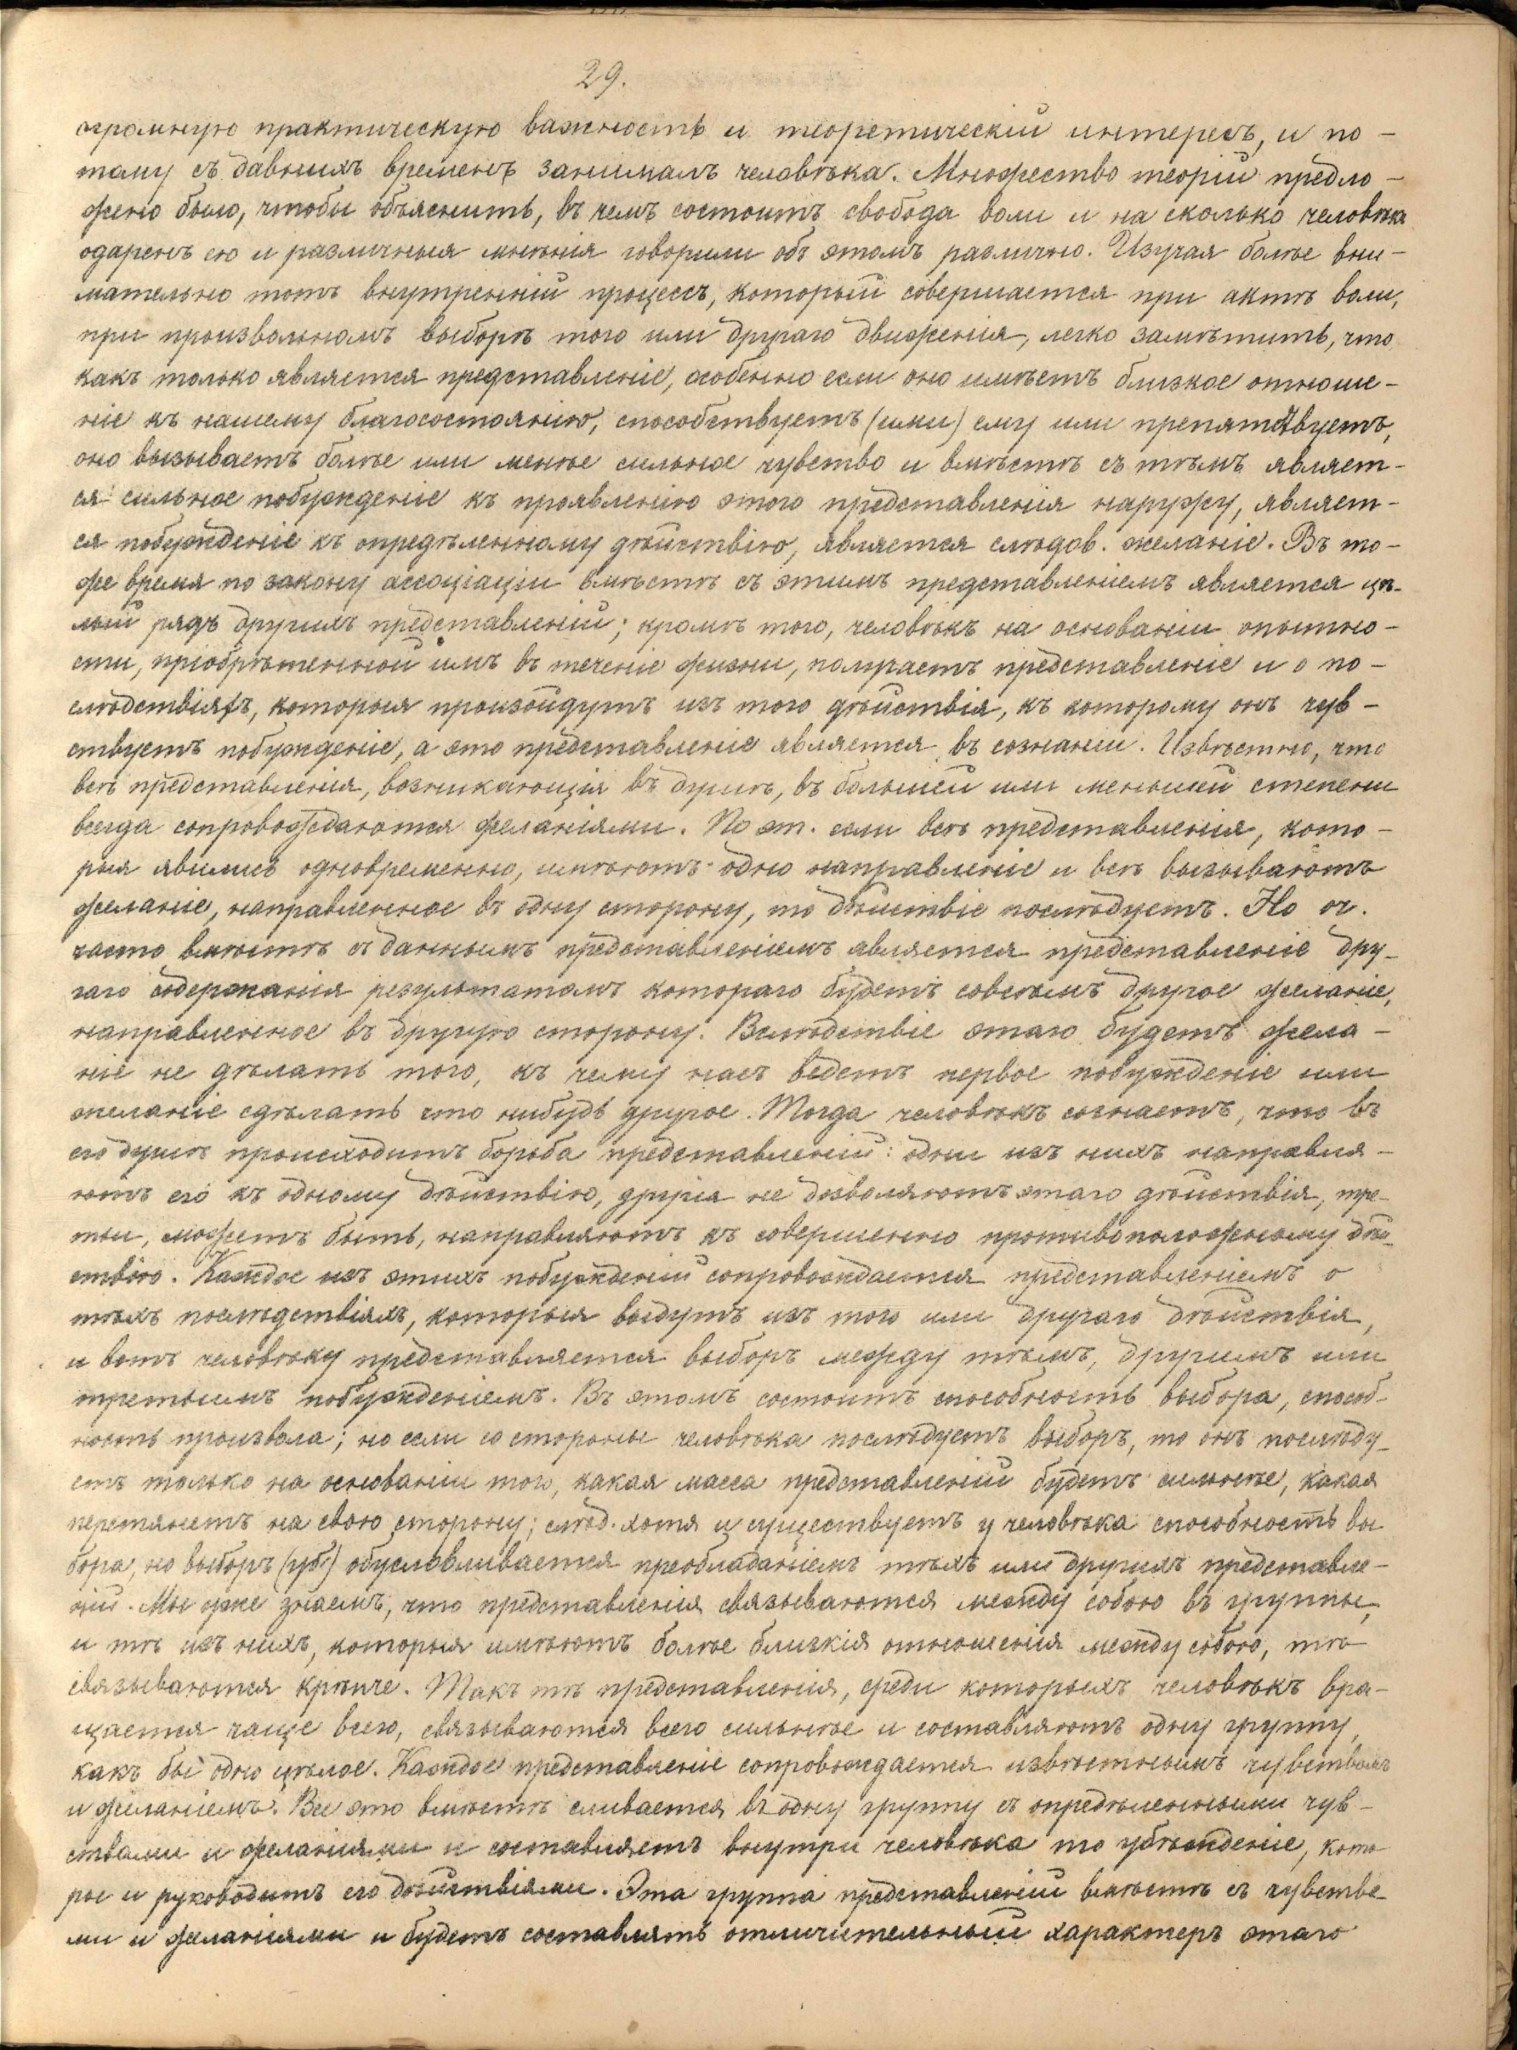 29.
огромную практическую важность и теоретическій интересъ, и по-
тому съ давнихъ временъ занималъ человѣка. Множество теорій предло-
жено было, чтобы объяснить, въ чемъ состоитъ свобода воли и на сколько человѣкъ
одаренъ ею и различныя мнѣнія говорили объ этомъ различно. Изучая болѣе вни-
мательно тотъ внутренній процессъ, который совершается при актѣ воли,
при произвольномъ выборѣ того или другаго движенія, легко замѣтить, что
какъ только является представленіе, особенно если оно имѣетъ близкое отноше-
ніе къ нашему благосостоянію, способствуетъ (или) ему или препятствуетъ,
оно вызываетъ болѣе или менѣе сильное чувство и вмѣстѣ съ тѣмъ являет-
ся сильное побужденіе къ проявленію этого представленія наружу, являет-
ся побужденіе къ опредѣленному дѣйствію, является слѣдов. желаніе. Въ то-
же время по закону ассоціаціи вмѣстѣ съ этимъ представленіемъ является цѣ-
лый рядъ другихъ представленій; кромѣ того, человѣкъ на основаніи опытно-
сти, пріобрѣтенной имъ въ теченіе жизни, получаетъ представленіе и о по-
слѣдствіяхъ, которыя произойдутъ изъ того дѣйствія, къ которому онъ чув-
ствуетъ побужденіе, а это представленіе является въ сознаніи. Извѣстно, что
всѣ представленія, возникающія въ душѣ, въ большей или меньшей степени
всегда сопровождаются желаніями. По эт. если всѣ представленія, кото-
рыя явились одновременно, имѣютъ одно направленіе и всѣ вызываютъ
желаніе, направленное въ одну сторону, то дѣйствіе послѣдуетъ. Но оч.
часто вмѣстѣ съ даннымъ представленіемъ является представленіе дру-
гаго содержанія результатомъ котораго будетъ совсѣмъ другое желаніе,
направленное въ другую сторону. Вслѣдствіе этаго будетъ жела-
ніе не дѣлать того, къ чему насъ ведетъ первое побужденіе или
желаніе сдѣлать что нибудь другое. Тогда человѣкъ сознаетъ, что въ
его душѣ происходитъ борьба представленій: одни изъ нихъ направля-
ютъ его къ одному дѣйствію, другія не дозволяютъ этаго дѣйствія, тре-
тьи, можетъ быть, направляютъ къ совершенно противоположному дѣй-
ствію. Каждое изъ этихъ побужденій сопровождается представленіемъ о
тѣхъ послѣдствіяхъ, которыя выдутъ изъ того или другаго дѣйствія,
и вотъ человѣку представляется выборъ между тѣмъ, другимъ или
третьимъ побужденіемъ. Въ этомъ состоитъ способность выбора, способ-
ность произвола; но если со стороны человѣка послѣдуетъ выборъ, то онъ послѣду-
етъ только на основаніи того, какая масса представленій будетъ сильнѣе, какая
перетянетъ на свою сторону; слѣд. хотя и существуетъ у человѣка способность вы
бора, но выборъ обусловливается преобладаніемъ тѣхъ или другихъ представле-
ній. Мы уже знаемъ, что представленія связываются между собою въ группы,
и тѣ изъ нихъ, которыя имѣютъ болѣе близкія отношенія между собою, тѣ
связываются крѣпче. Такъ тѣ представленія, среди которыхъ человѣкъ вра-
щается чаще всего, связываются всего сильнѣе и составляютъ одну группу,
какъ бы одно цѣлое. Каждое представленіе сопровождается извѣстнымъ чувствомъ
и желаніемъ. Все это вмѣстѣ сливается въ одну группу съ опредѣленными чув-
ствами и желаніями и составляетъ внутри человѣка то убѣжденіе, кото
рое и руководитъ его дѣйствіями. Эта группа представленій вмѣстѣ съ чувства
ми и желаніями и будетъ составлять отличительный характеръ этаго